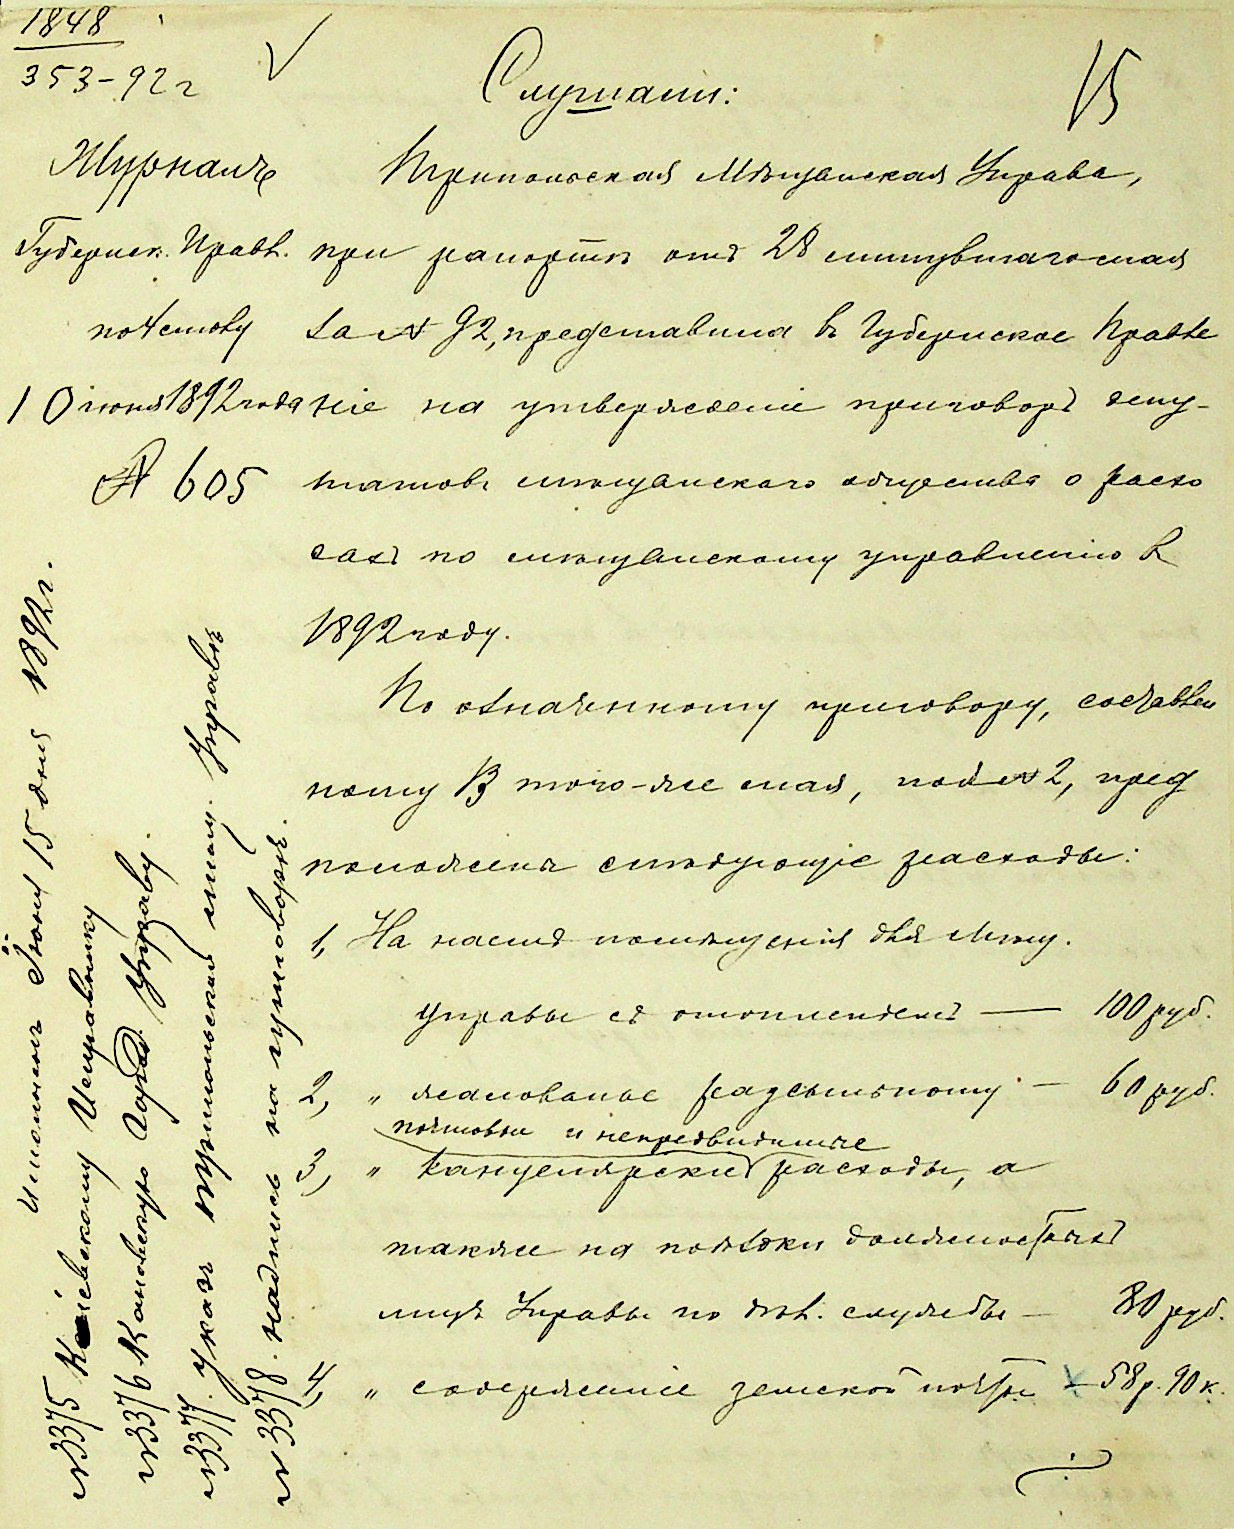 1848
353-92 г
Слушали:
15
Журналъ
Губернск. Правл.
по 4 столу
10 июня 1892 года
№ 605
Трипольская Мѣщанская Управа,
при рапортѣ отъ 28 минувшаго мая
за № 92, представила въ Губернское Правле
ніе на утвержденіе приговоръ депу-
татовъ мѣщанскаго общества о расхо
дахъ по мѣщанскому управленію в
1892 году.
По означенному приговору, составлен
ному 13 того-же мая, под № 2, пред
положены слѣдующіе расходы:
1, На наемъ помѣщенія для Мѣщ.
Управы съ отопленіемъ — 100 руб.
2, „ жалованье разсыльному — 60 руб.
почтовые и непредвидимые
3, „ канцелярскіе расходы, а
также на поѣздки должностныхъ
лицъ Управы по дѣл. службы — 80 руб.
4, „ содержаніе земской почты — 58 р. 90 к.
Исполненъ Іюня 15 дня 1892 г.
№ 3375 Каневскому Исправнику
№ 3376 Каневскую Город. Управу.
№ 3377. Указъ Трипольской мѣщ. Управѣ
№ 3378. надпись на приговорѣ.